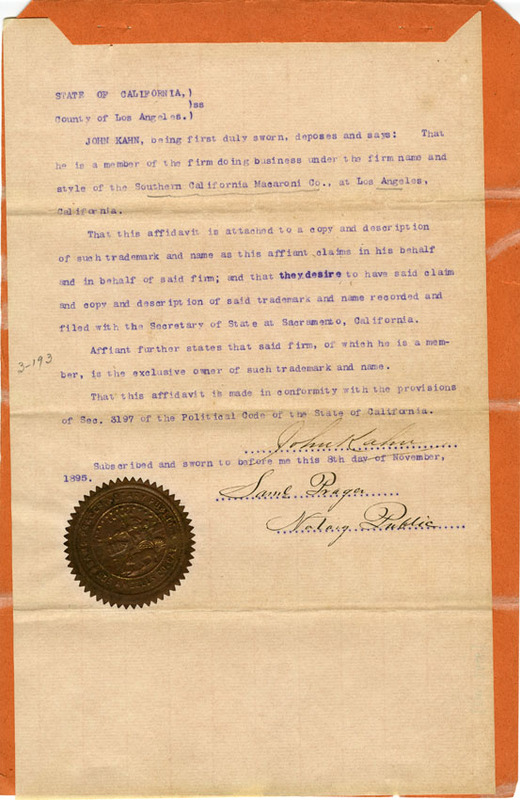 STATE OF CALIFORNIA,)
)ss
County of Los Angeles.)
JOHN KAHN, being first duly sworn, deposes and says: That
he is a member of the firm doing business under the firm name and
style of the Southern California Macaroni Co., at Los Angeles,
California.
That this affidavit is attached to a copy and description
of such trademark and name as this affiant claims in his behalf
and in behalf of said firm; and that they desire to have said claim
and copy and description of said trademark and name recorded and
filed with the Secretary of State at Sacramento, California.
Affiant further states that said firm, of which he is a mem-
3-193
ber, is the exclusive owner of such trademark and name.
That this affidavit is made in conformity with the provisions
of Sec. 3197 of the Political Code of the State of California.
John Kahn
Subscribed and sworn to before me this 8th day of November,
1895.
Saml Prager
Notary Public